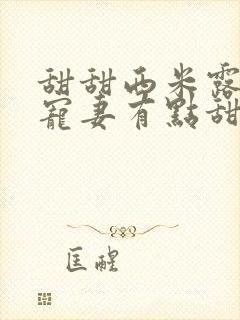 甜甜西米露
寵妻有點甜
匡醒